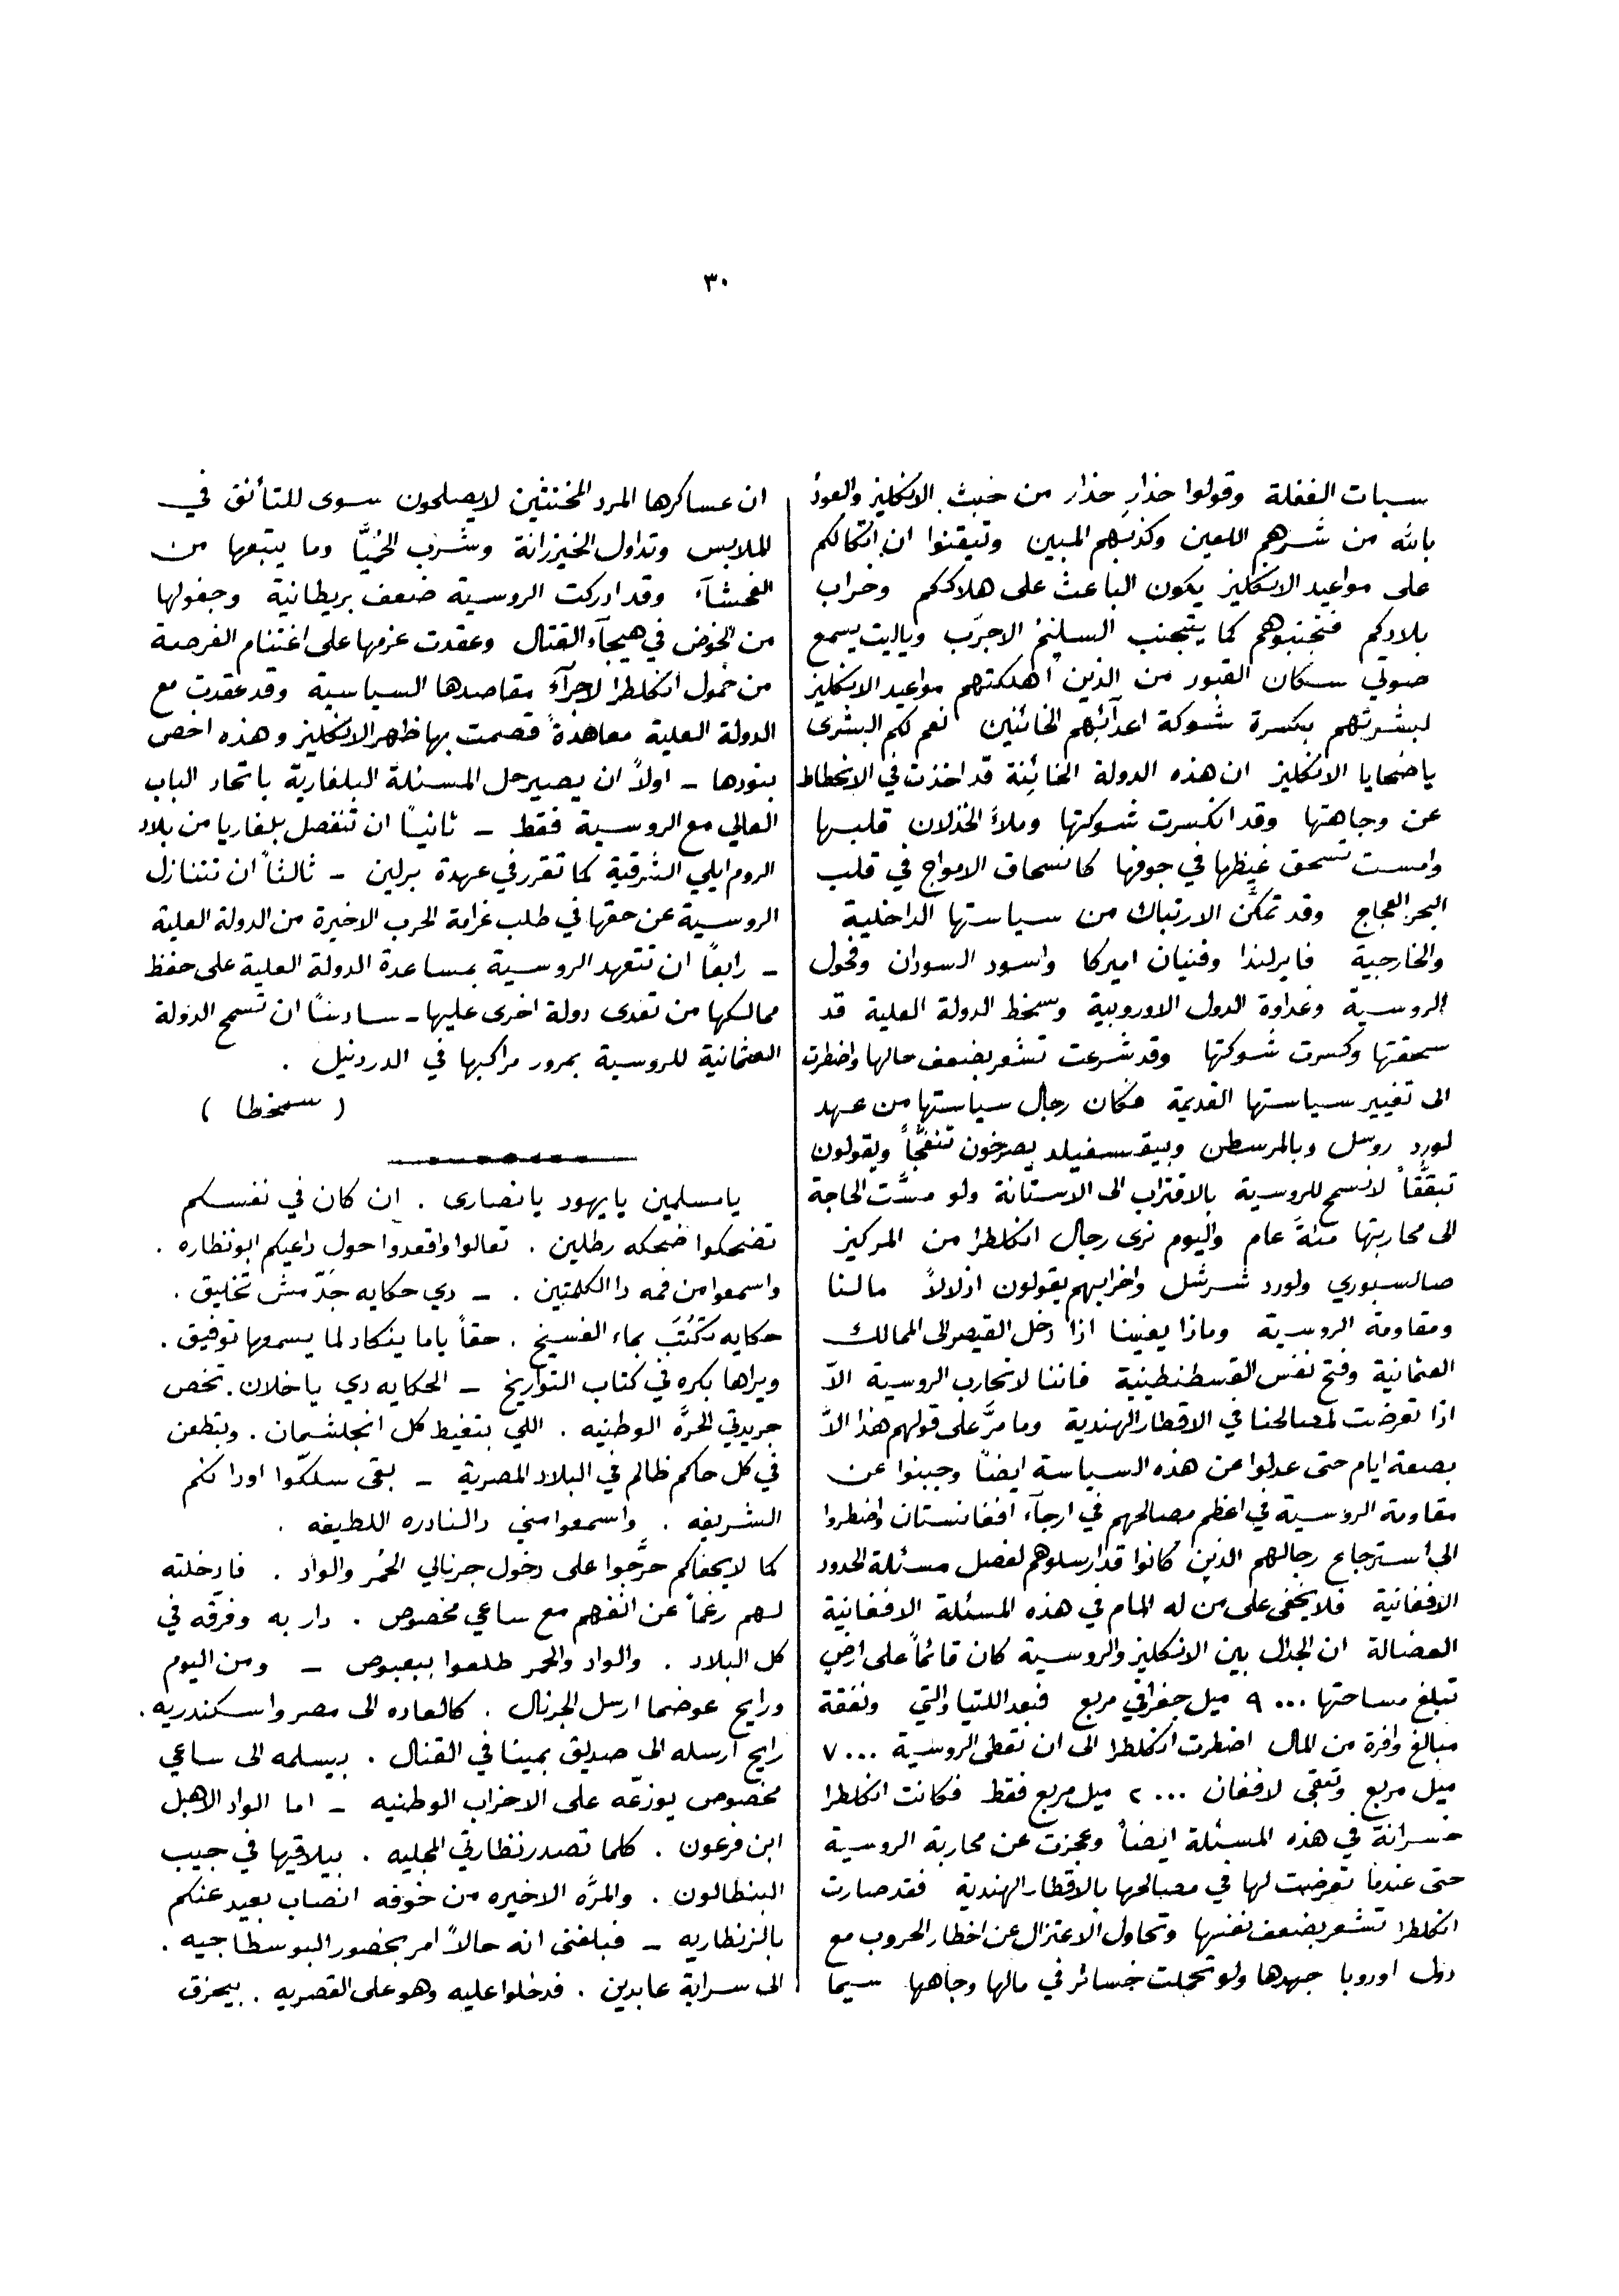 ٣٠
سبات الغفلة وقولوا حذارِ حذار من خبث الانكليز والعوذ
بالله من شرهم اللعين وكذبهم المبين وتيقنوا ان اتكالكم
على مواعيد الانكليز يكون الباعث على هلاككم وخراب
بلادكم فتجنبوهم كما يتجنب السليمُ الاجرَب وياليت يسمع
صوتي سكان القبور من الذين اهلكتهم مواعيد الانكليز
لبشرتهم بكسرة شوكة اعدآئهم الخائنين نعم لكم البشرى
ياضحايا الانكليز ان هذه الدولة الخائِنة قد اخذت في الانحطاط
عن وجاهتها وقد انكسرت شوكتها وملأ الخذلان قلبها
وامست تسحق غيظها في جوفها كانسحاق الامواج في قلب
البحر العجاج وقد تمكّن الارتباك من سياستها الداخلية
والخارجية فايرلندا وفنيان اميركا واسود السودان وفحول
الروسية وعداوة الدول الاوروبية وسخط الدولة العلية قد
سحقتها وكسرت شوكتها وقد شرعت تشعر بضعف حالها واضطرت
الى تغيير سياستها القديمة فكان رجال سياستها من عهد
لورد روسل وبالمرسطن وبيقنسفيلد يصرخون تنفجًا ويقولون
تبققًا لا نسمح للروسية بالاقتراب الى الاستانة ولو مسّت الحاجة
الى محاربتها مئةَ عام واليوم نرى رجال انكلطرا من المركيز
صالسبوري ولورد شرشل واضرابهم يقولون اذلالاً مالنا
ومقاومة الروسية وماذا يعنينا اذا دخل القيصر الى الممالك
العثمانية وفتح نفس القسطنطينية فاننا لا نحارب الروسية الاّ
اذا تعرضت لمصالحنا في الاقطار الهندية وما مرَّ على قولهم هذا الاَّ
بضعة ايام حتى عدلوا عن هذه السياسة ايضاً وجبنوا عن
مقاومة الروسية في اعظم مصالحهم في ارجآء افغانستان واضطروا
الى استرجاع رجالهم الذين كانوا قد ارسلوهم لفصل مسئلة الحدود
الافغانية فلا يخفى على من له المام في هذه المسئلة الافغانية
العضالة ان الجدال بين الانكليز والروسية كان قائمًا على ارضٍ
تبلغ مساحتها ٩٠٠٠ ميل جغرافي مربع فبعد اللتيا والتي ونفقة
مبالغ وافرة من المال اضطرت انكلطرا الى ان تعطى الروسية ٧٠٠٠
ميل مربع وتبقى لافغان ٢٠٠٠ ميل مربع فقط فكانت انكلطرا
خسرانة في هذه المسئلة ايضاً وعجزت عن محاربة الروسية
حتى عندما تعرضت لها في مصالحها بالاقطار الهندية فقد صارت
انكلطرا تشعر بضعف نفسها وتحاول الاعتزال عن اخطار الحروب مع
دول اوروبا جهدها ولو تحملت خسائر في مالها وجاهها سيما
ان عساكرها المرد المخنثين لا يصلحون سوى للتأنق في
الملابس وتداول الخيزرانة وشرب الحُميَّا وما يتبعها من
الفحشآء وقد ادركت الروسية ضعف بريطانية وجفولها
من الخوض في هيجآء القتال وعقدت عزمها على اغتنام الفرصة
من خمول انكلطرا لاجرآء مقاصدها السياسية وقد عقدت مع
الدولة العلية معاهدةً قصمت بها ظهر الانكليز وهذه اخص
بنودها – اولاً ان يصير حل المسئلة البلغارية باتحاد الباب
العالي مع الروسية فقط – ثانياً ان تنفصل بلغاريا من بلاد
الروم ايلي الشرقية كما تقرر في عهدة برلين – ثالثاً ان تتنازل
الروسية عن حقها في طلب غرامة الحرب الاخيرة من الدولة العلية
– رابعاً ان تتعهد الروسية بمساعدة الدولة العلية على حفظ
ممالكها من تعدى دولة اخرى عليها – سادساً ان تسمح الدولة
العثمانية للروسية بمرور مراكبها في الدردنيل .
( سخطا )
يا مسلمين يا يهود يا نصارى . ان كان في نفسكم
تضحكوا ضحكه رطلين . تعالوا واقعدوا حول داعيكم ابو نظاره .
واسمعوا من فمه دا الكلمتين . – دي حكايه جَدّ مش تخليق .
حكايه تكتَبَ بماء الفسيخ . حقاً ياما ينكاد لما يسمعها توفيق .
ويراها بكره في كتاب التواريخ – الحكايه دي ياخلان . تخص
جريدتي الحرَّه الوطنيه . اللي بتغيظ كل انجلشمان . وبتطعن
في كل حاكم ظالم في البلاد المصرية – بقى سلكّوا اودانكم
الشريفه . واسمعوا مني دالنادره اللطيفه .
كما لا يخفاكم حرَّجوا على دخول جرنالي الحُمر والواد . فادخلته
لهم رغماً عن انفهم مع ساعي مخصوص . دار به وفرقه في
كل البلاد . والواد والحمر طلعوا ببعبوص – ومن اليوم
ورايح عوضما ارسل الجرنال . كالعاده الى مصر واسكندريه .
رايح ارسله الى صديق بمينا في القنال . بيسلمه الى ساعي
مخصوص يوزعّه على الاحزاب الوطنيه – اما الواد الاهبل
ابن فرعون . كلما تصدر نظارتي المجليه . بيلاقيها في جيب
البنطالون . والمرَّه الاخيره من خوفه انصاب بعيد عنكم
بالزنطاريه – فبلغنى انه حالاً امر بحضور البوسطاجيه .
الى سراية عابدين . فدخلوا عليه وهو على القصريه . بيحزق